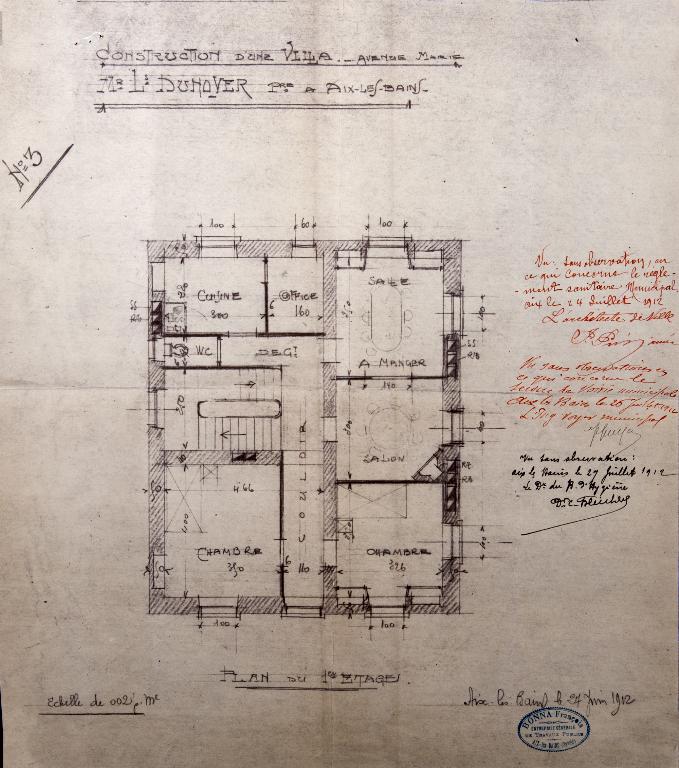 CONSTRUCTION D'UNE VILLA _ AVENUE MARIE
MR Ls DUNOYER PRE A AIX-LES-BAINS
No 3
100
60
100
CUISINE
300
OFFICE
160
SALLE
A MANGER
WC
DEGT
140
SALON
COULOIR
4.66
400
CHAMBRE
350
110
CHAMBRE
326
100
100
Vu sans observation, en
ce qui concerne le règle-
-ment sanitaire Municipal
aix le 24 Juillet 1912
L'architecte de Ville
Vu sans observations en
ce qui concerne le
service de Voirie municipale
Aix les Bains le 26 Juillet 1912
L'Ing Voyer municipal
Vu sans observation :
aix les Bains le 29 Juillet 1912
Le Dr du B. d'Hygiène
PLAN DU 1er ETAGE.
Echelle de 002 p. Me
Aix-les-Bains le 27 Juin 1912
BONNA François
ENTREPRISE GÉNÉRALE
DE TRAVAUX PUBLICS
AIX-les-BAINS (Savoie)